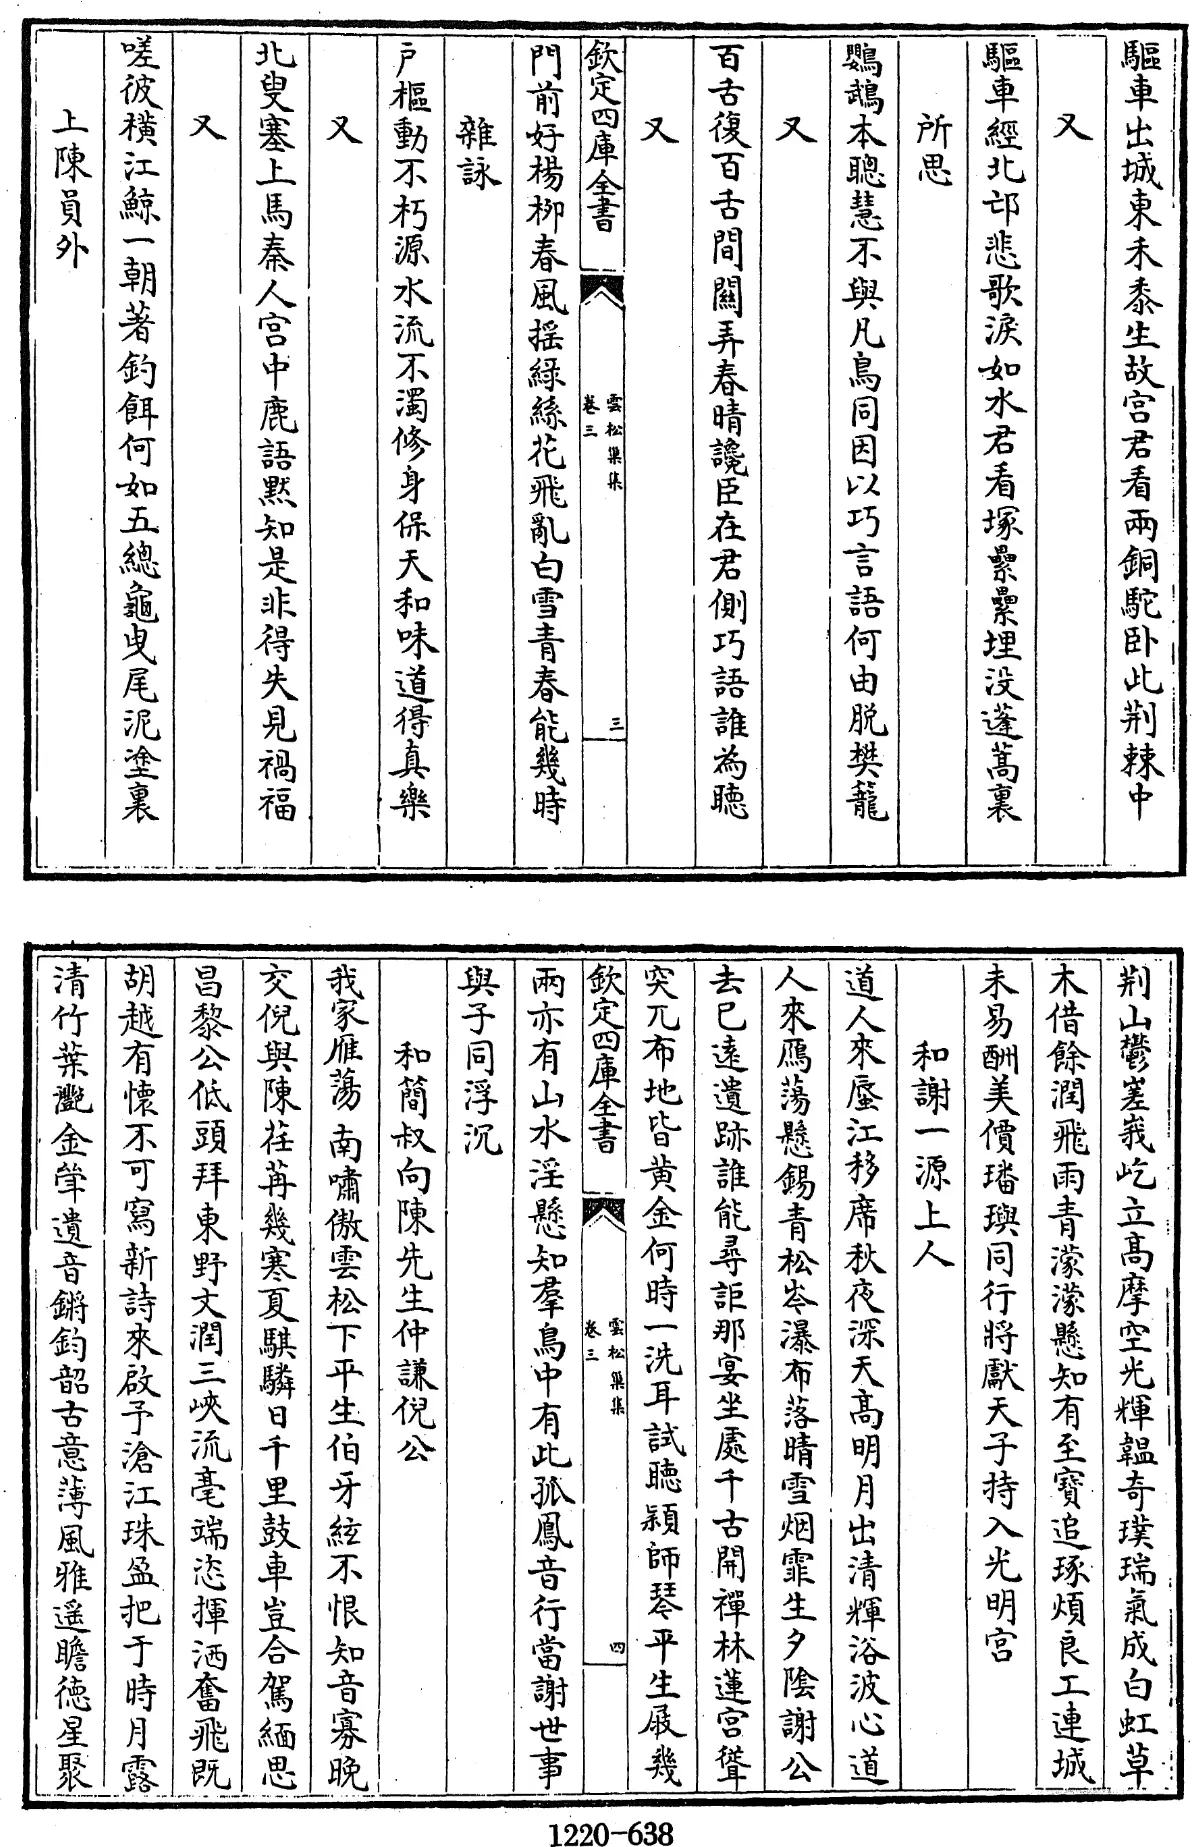 驅車出城東禾黍生故宫君看兩銅駝卧此荆棘中
又
驅車經北邙悲歌淚如水君看塚纍纍埋没蓬蒿裏
所思
鸚鵡本聰慧不與凡鳥同因以巧言語何由脱樊籠
又
百舌復百舌間關弄春晴讒臣在君側巧語誰為聽
又
欽定四庫全書
雲松巢集
卷三
三
門前好楊柳春風摇綠絲花飛亂白雪青春能幾時
雜詠
户樞動不朽源水流不濁修身保天和味道得真樂
又
北叟塞上馬秦人宫中鹿語默知是非得失見禍福
又
嗟彼横江鯨一朝著釣餌何如五總龜曳尾泥塗裏
上陳員外
荆山鬱嵳峩屹立髙摩空光輝韞奇璞瑞氣成白虹草
木借餘潤飛雨青濛濛懸知有至寳追琢煩良工連城
未易酬美價璠璵同行將獻天子持入光明宫
和謝一源上人
道人來蜃江移席秋夜深天髙明月出清輝浴波心道
人來鴈蕩懸錫青松岑瀑布落晴雪烟霏生夕陰謝公
去已遠遺跡誰能尋詎那宴坐處千古開禪林蓮宫聳
突兀布地皆黄金何時一洗耳試聽潁師琴平生屐幾
欽定四庫全書
雲松巢集
卷三
四
兩亦有山水淫懸知羣鳥中有此孤鳳音行當謝世事
與子同浮沉
和簡叔向陳先生仲謙倪公
我家雁蕩南嘯傲雲松下平生伯牙絃不恨知音寡晚
交倪與陳荏苒幾寒夏騏驎日千里鼓車豈合駕緬思
昌黎公低頭拜東野文潤三峽流毫端恣揮洒奮飛既
胡越有懷不可寫新詩來啟予滄江珠盈把于時月露
清竹葉灔金斝遺音鏘鈞韶古意薄風雅遥瞻徳星聚
1220-638